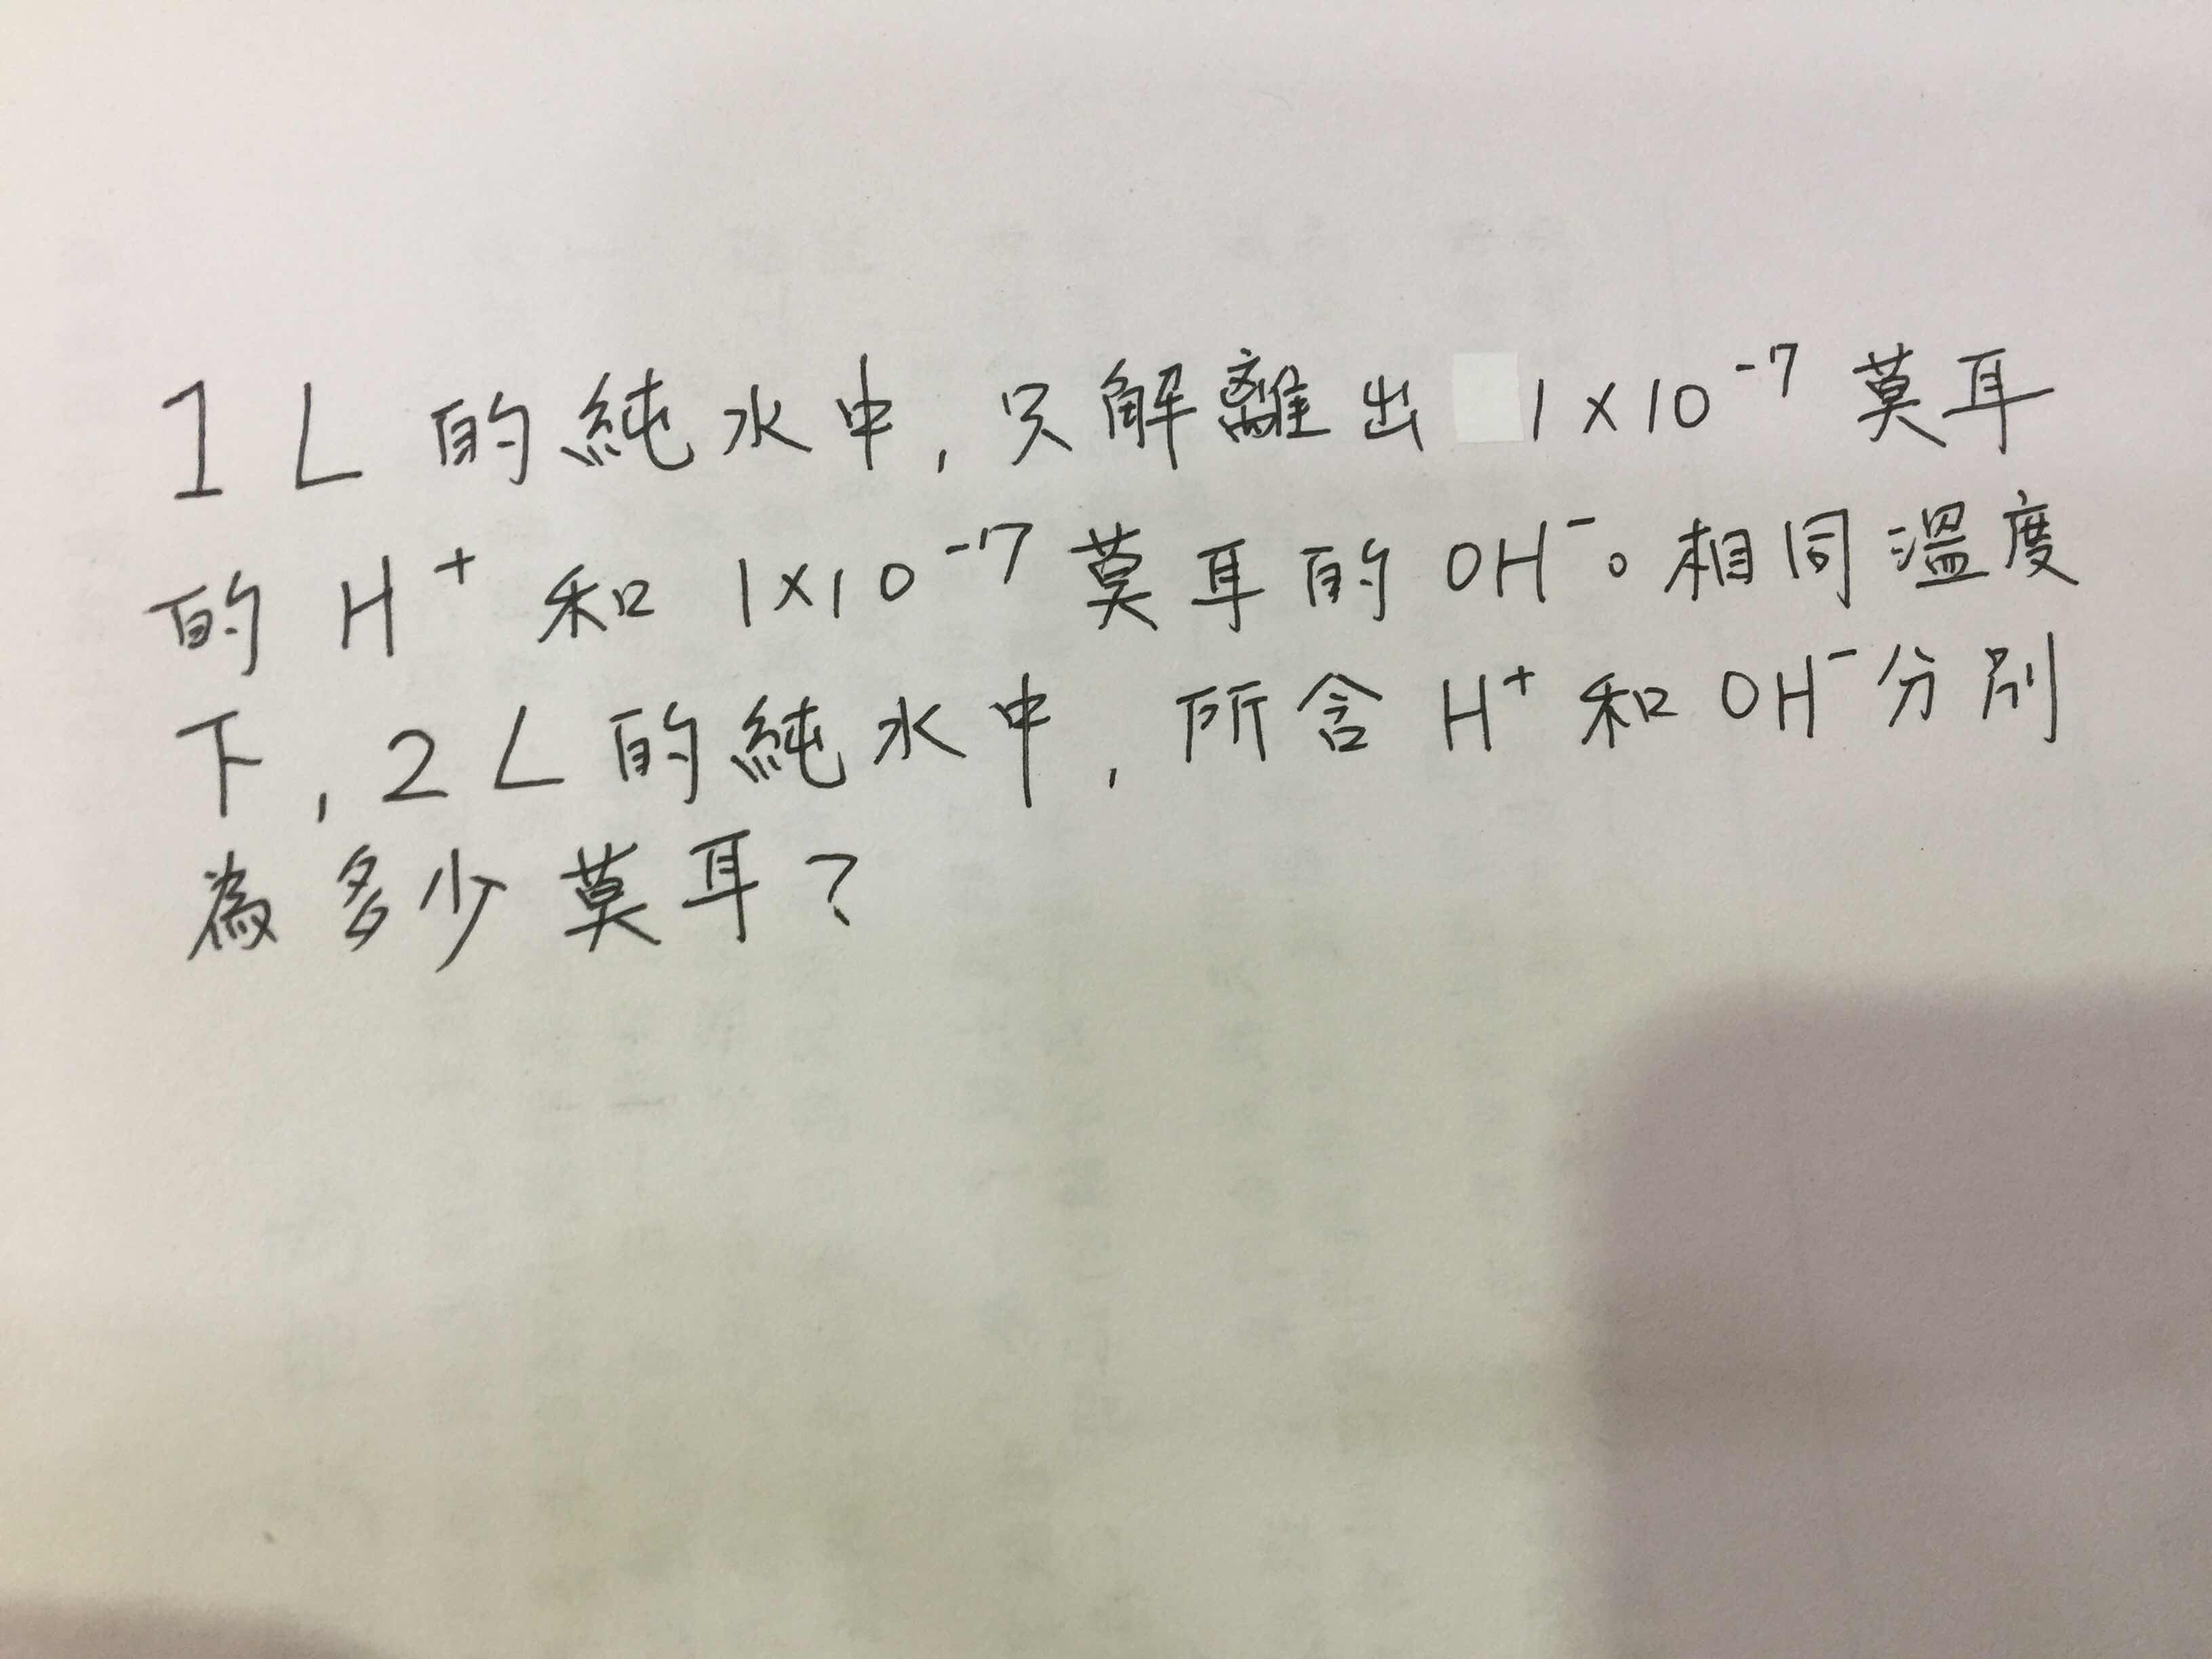 1L的純水中,只解離出 1×10⁻⁷莫耳
的H⁺和1×10⁻⁷莫耳的OH⁻。相同溫度
下,2L的純水中,所含H⁺和OH⁻分別
為多少莫耳?